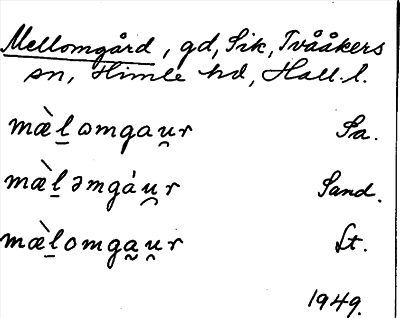 Mellomgård, gd, Sik, Tvååkers
sn, Himle hd, Hall. l.
mæ̀l̠omgau̯r Sa.
mæ̀l̠əmgáu̯r Sand.
mæ̀l̠omga̰u̯r St.
1949.